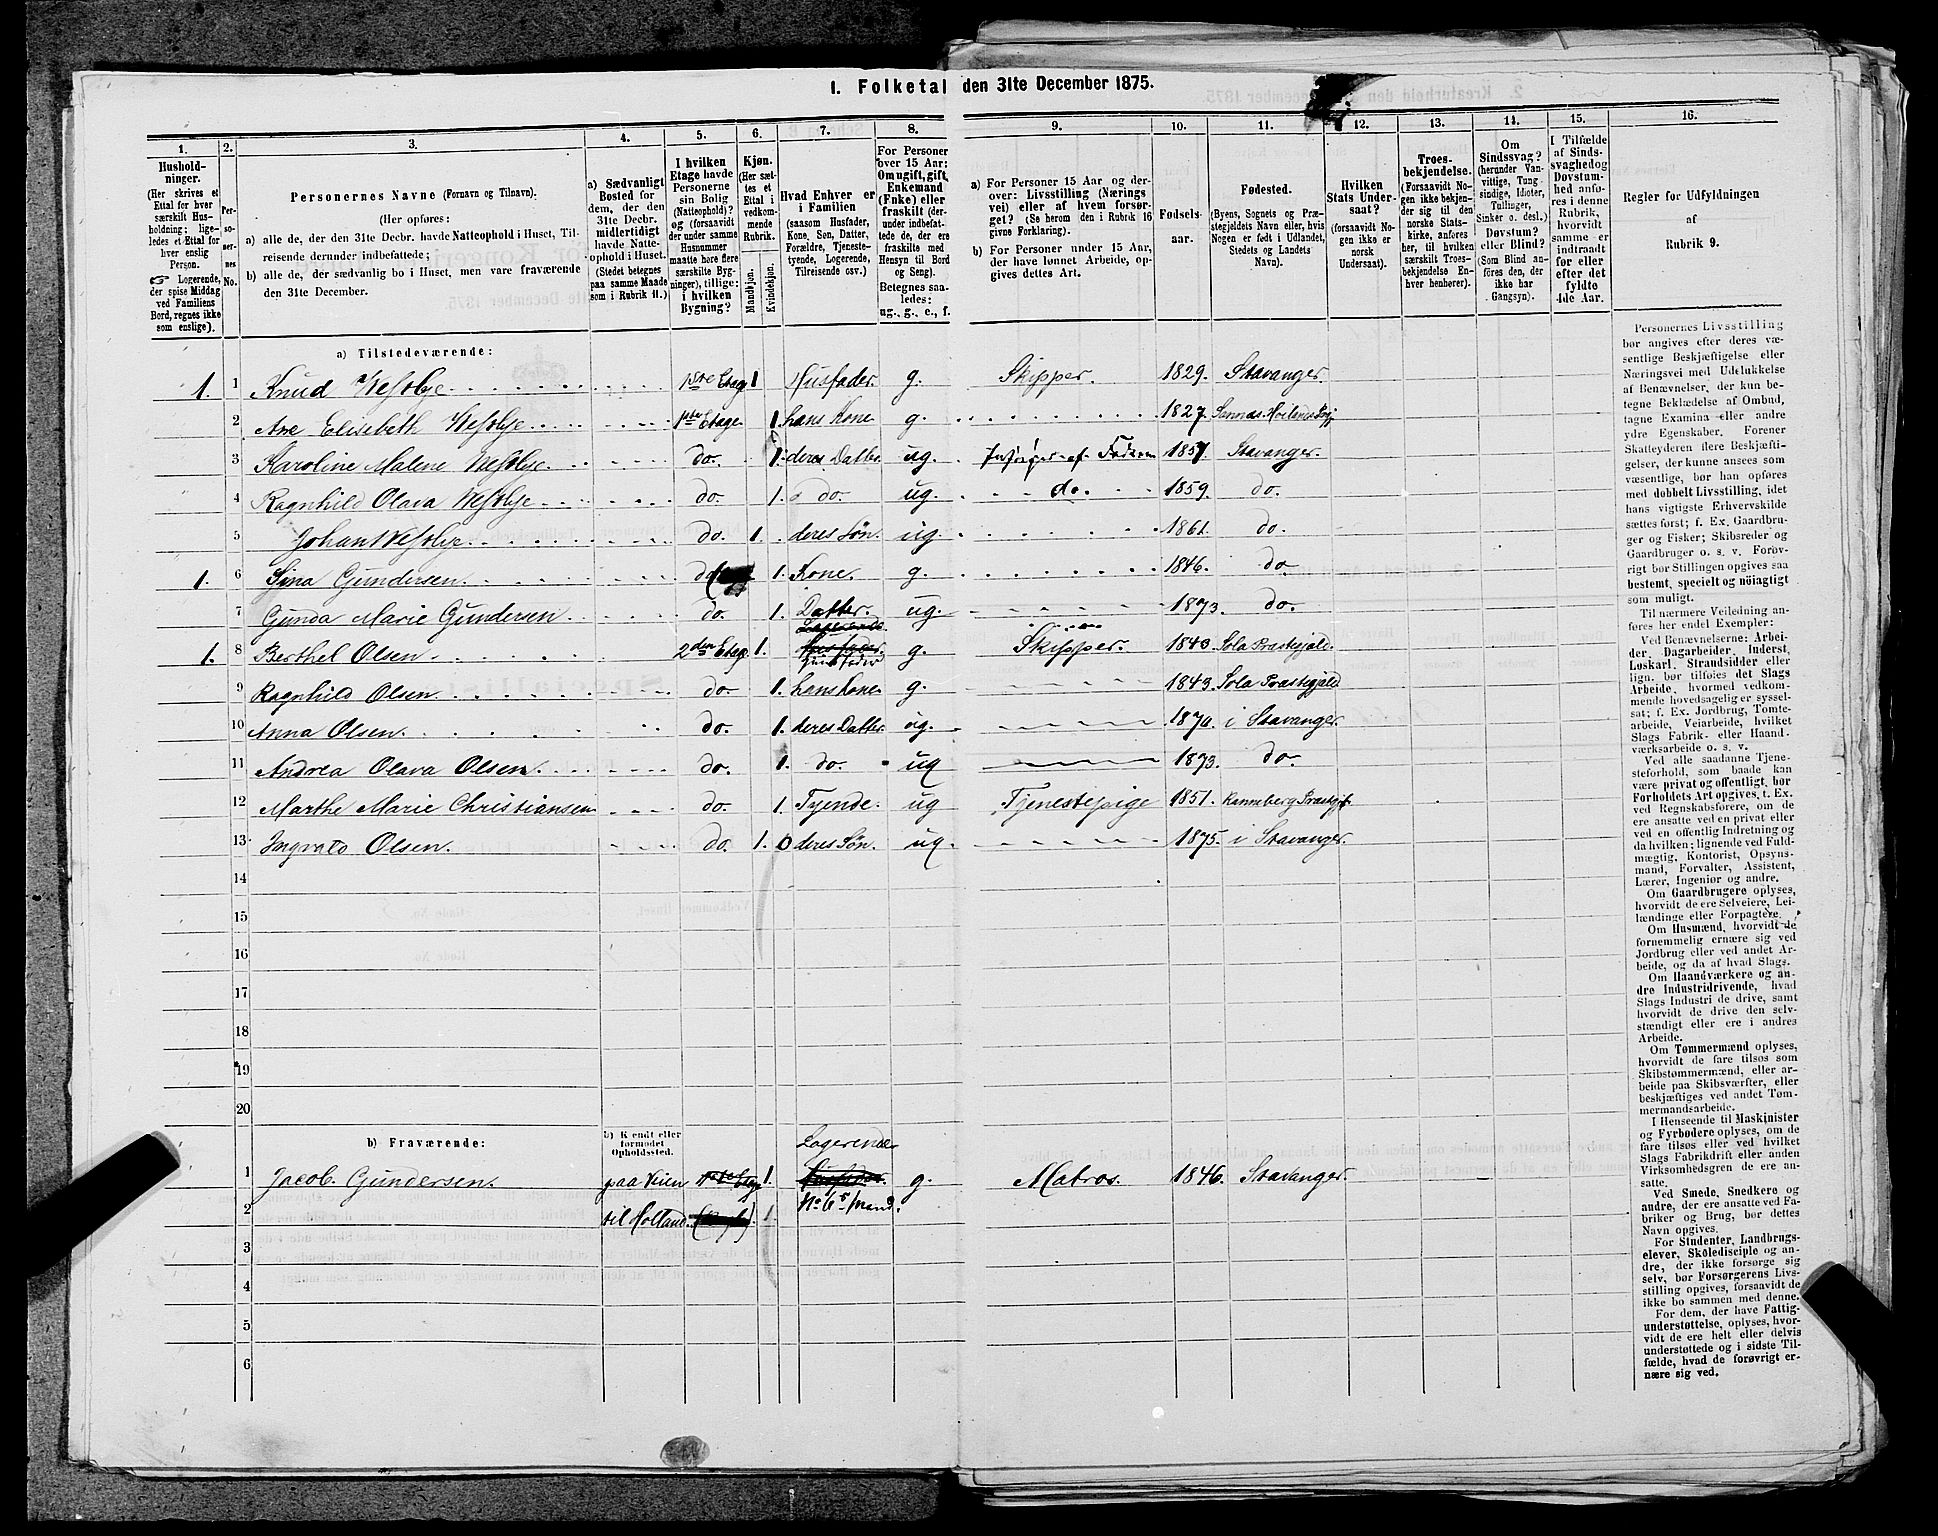 1. Folketal den 31te December 1875.
1. 2. 3. 4. 5. 6. 7. 8. 9. 10. 11. 12. 13. 14. 15. 16.
Hushold-
ninger.
(Her skrives et
Ettal for hver
særskilt Hus-
holdning; lige-
ledes et Ettal for
hver enslig
Person.
Logerende,
der spise Middag
ved Familiens
Bord, regnes ikke
som enslige).
Per-
so-
ner-
nes
No.
Personernes Navne (Fornavn og Tilnavn).
(Her opføres:
a) alle de, der den 31te Decbr. havde Natteophold i Huset, Til-
reisende derunder indbefattede;
b) alle de, der sædvanlig bo i Huset, men vare fraværende
den 31te December.
a) Sædvanligt
Bosted for
dem, der den
31te Decbr.
midlertidigt
havde Natte-
ophold i Huset.
(Stedet betegnes
paa samme Maade
som i Rubrik 11.)
I hvilken
Etage havde
Personerne
sin Bolig
(Natteophold)?
og (forsaavidt
der under samme
Husnummer
maatte høre flere
særskilte Byg-
ninger), tillige:
i hvilken
Bygning?
Kjøn.
(Her sæt-
tes et
Ettal i
vedkom-
mende
Rubrik.
Mandkjøn.
Kvindekjøn.
Hvad Enhver er
i Familien
(saasom Husfader,
Kone, Søn, Datter,
Forældre, Tjeneste-
tyende, Logerende,
Tilreisende osv.)
For Personer
over 15 Aar:
Om ugift, gift,
Enkemand
(Enke) eller
fraskilt (der-
under indbefat-
tede de, der ere
fraskilte med
Hensyn til Bord
og Seng).
Betegnes saa-
ledes:
ug., g., e., f.
a) For Personer 15 Aar og der-
over: Livsstilling (Nærings
vei) eller af hvem forsør-
get? (Se herom den i Rubrik 16
givne Forklaring).
b) For Personer under 15 Aar,
der have lønnet Arbeide, op-
gives dettes Art.
Fødsels-
aar.
Fødested.
(Byens, Sognets og Præ-
stegjeldets Navn eller, hvis
Nogen er født i Udlandet,
Stedets og Landets
Navn).
Hvilken
Stats Under-
saat?
(forsaavidt No-
gen ikke er
norsk
Undersaat).
Troes-
bekjendelse.
(Forsaavidt No-
gen ikke bekjen-
der sig til den
norske Stats-
kirke, anføres
her, til hvilken
særskilt Troes-
bekjendelse En-
hver henhører).
Om
Sindssvag?
(herunder Van-
vittige, Tung
sindige, Idioter,
Tullinger,
Sinker o. desl.)
Døvstum?
eller Blind?
(Som Blind an-
føres den, der
ikke har
Gangsyn).
I Tilfælde
af Sinds-
svaghed og
Døvstum-
hed anfø-
res i denne
Rubrik,
hvorvidt
samme er
indtraadt
før eller
efter det
fyldte
4de Aar.
Regler for Udfyldningen
af
Rubrik 9.
a) Tilstedeværende:
1. 1 Knud Vesbye 1ste Etage 1 Husfader. g. Skipper. 1829. Stavanger.
2 Ane Elisebeth Vesbye 1ste Etage. 1 hans Kone g. 1827.
3 Karoline Malene Vesbye. do. 1. deres Datter ug. 1857 Stavanger.
4 Ragnhild Olava Vesbye do. 1. do. ug. do. 1859. do.
5 Johan Vesbye. do. 1. deres Søn. ug. 1861. do.
1. 6 Sina Gundersen. do 1. Kone. g. 1846. do.
7 Gunda Marie Gundersen do. 1. Datter. ug. 1873. do.
1. 8 Berthel Olsen 2den Etag. 1. Husfader g. Skipper. 1840. Sola Præstegjæld.
9 Ragnhild Olsen do. 1. hans Kone g. 1843. Sola Præstegjæld
10 Anna Olsen. do. 1. deres Datter. ug. 1870. i Stavanger.
11 Andrea Olava Olsen. do. 1. do. ug 1873. do.
12 Marthe Marie Christiansen do. 1. Tyende. ug Tjenestepige 1851. Renneberg Præstgj
13 Ingvald Olsen. do. 1. 0 deres Søn. ug. 1875. i Stavanger.
14
15
16
17
18
19
20
b) Fraværende:
b) Kendt eller
formodet
Opholdssted.
Logerende
1 Jacob. Gundersen. paa Veien 1. Husfader. g. Matros. 1846. Stavanger.
2 til Holland. 1. No 6s Mand.
3
4
5
6
Personernes Livsstilling
bør angives efter deres væ-
sentlige Beskjæftigelse eller
Næringsvei med Udelukkelse
af Benævnelser, der kun be-
tegne Beklædelse af Ombud,
tagne Examina eller andre
ydre Egenskaber. Forener
Skatteyderen flere Beskjæfti-
gelser, der kunne ansees som
væsentlige, bør han opføres
med dobbelt Livsstilling, idet
hans vigtigste Erhvervskilde
sættes først; f. Ex. Gaardbru-
ger og Fisker; Skibsreder og
Gaardbruger o. s. v. Forøv-
rigt bør Stillingen opgives saa
bestemt, specielt og nøiagtigt
som muligt.
Til nærmere Veiledning an-
føres her endel Exempler:
Ved Benævnelserne: Arbei-
der, Dagarbeider, Inderst,
Løskarl, Strandsidder eller
lign. bør tilføies det Slags
Arbeide, hvormed vedkom-
mende hovedsagelig er syssel-
sat; f. Ex. Jordbrug, Tomte-
arbeide, Veiarbeide, hvilket
Slags Fabrik- eller Haand-
værksarbeide o. s. v.
Ved alle saadanne Tjene-
steforhold, som baade kan
være privat og offentligt, bør
Forholdets Art opgives, t. Ex.
ved Regnskabsførere, om de
ere ansatte ved en privat eller
ved en offentlig Indretning og
da hvilken; lignende ved Fuld-
mægtig, Kontorist, Opsyns-
mand, Forvalter, Assistent,
Lærer, Ingeniør og andre.
Om Gaardbrugere oplyses,
hvorvidt de ere Selveiere, Lei-
lændinge eller Forpagtere.
Om Husmænd, hvorvidt de
fornemmelig ernære sig ved
Jordbrug eller ved andet Ar-
beide, og da af hvad Slags.
Om Haandværkere og an-
dre Industridrivende, hvad
Slags Industri de drive, samt
hvorvidt de drive den selv-
stændigt eller ere i andres
Arbeide.
Om Tømmermænd oplyses,
hvorvidt de fare tilsøs som
Skibstømmermænd, eller ar-
beide paa Skibsværfter, eller
beskjæftiges ved andet Tøm-
mermandsarbeide.
I Henseende til Maskinister
og Fyrbødere oplyses, om de
fare tilsøs eller ved hvilket
Slags Fabrikdrift eller anden
Virksomhedsgren de ere an-
satte.
Ved Smede, Snedkere og
andre, der ere ansatte ved Fa-
briker og Brug, bør dettes
Navn opgives.
For Studenter, Landbrugs-
elever, Skoledisciple og an-
dre, der ikke forsørge sig
selv, bør Forsørgerens Livs-
stilling opgives, forsaavidt de
ikke bo sammen med denne.
For dem, der have Fattig-
understøttelse, oplyses, hvor-
vidt de ere helt eller delvis
understøttede og i sidste Til-
fælde, hvad de forøvrigt er-
nære sig ved.